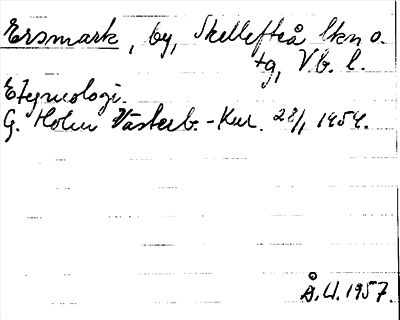 Ersmark, by, Skellefteå lkn o.
tg, Vb. l.
Etymologi.
G. Holm Västerb.-Kur. 28/1 1954.
Å.U. 1957.